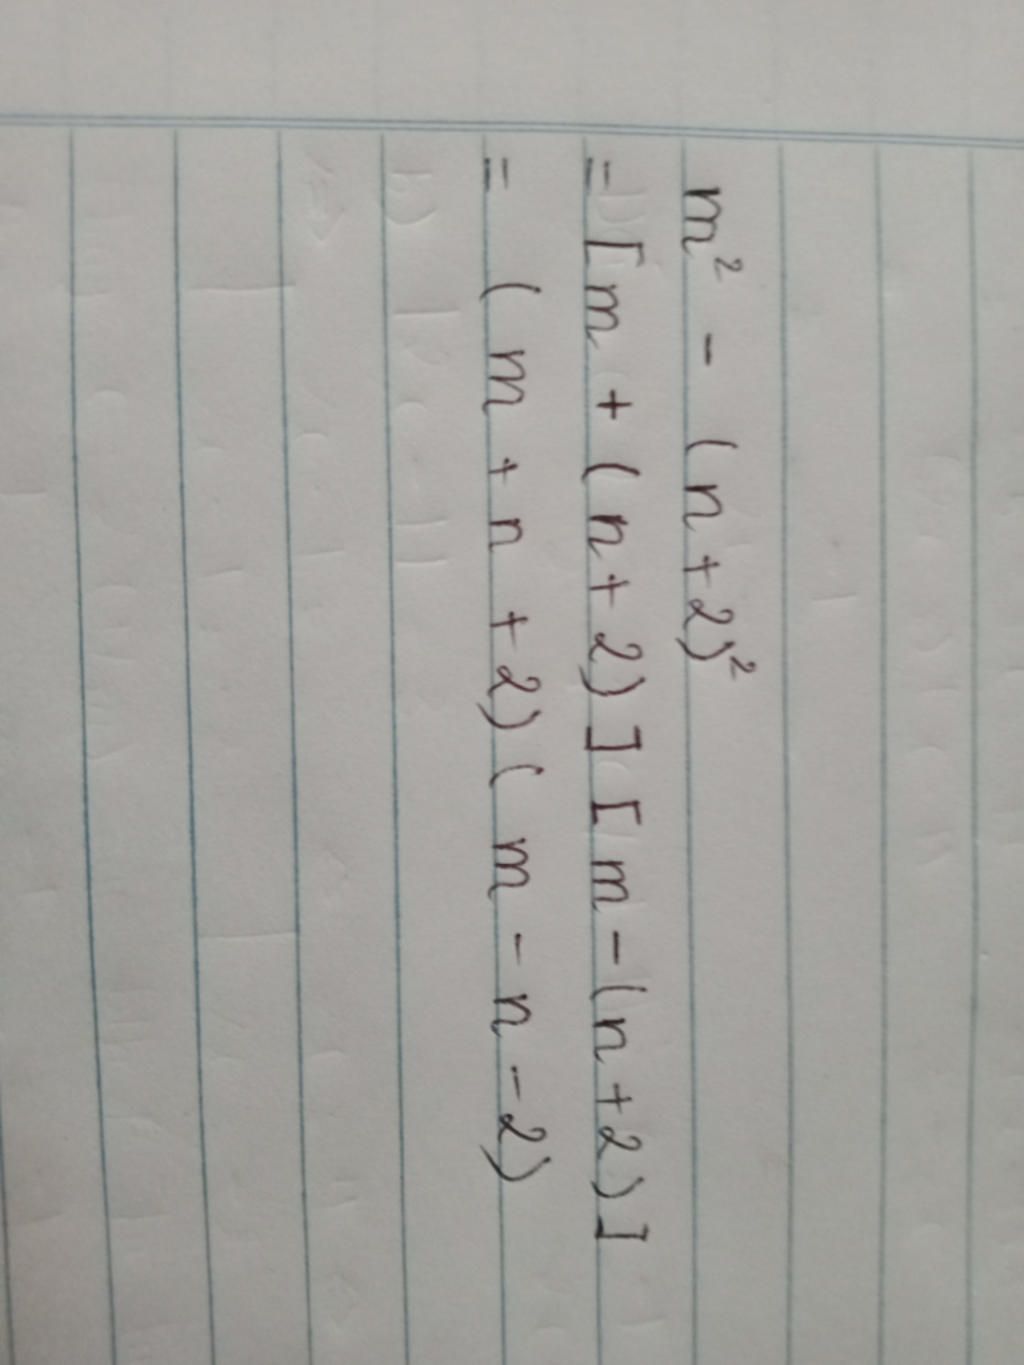 m² - (n+2)²
= [m + (n+2)] [m - (n+2)]
= (m + n + 2) (m - n - 2)